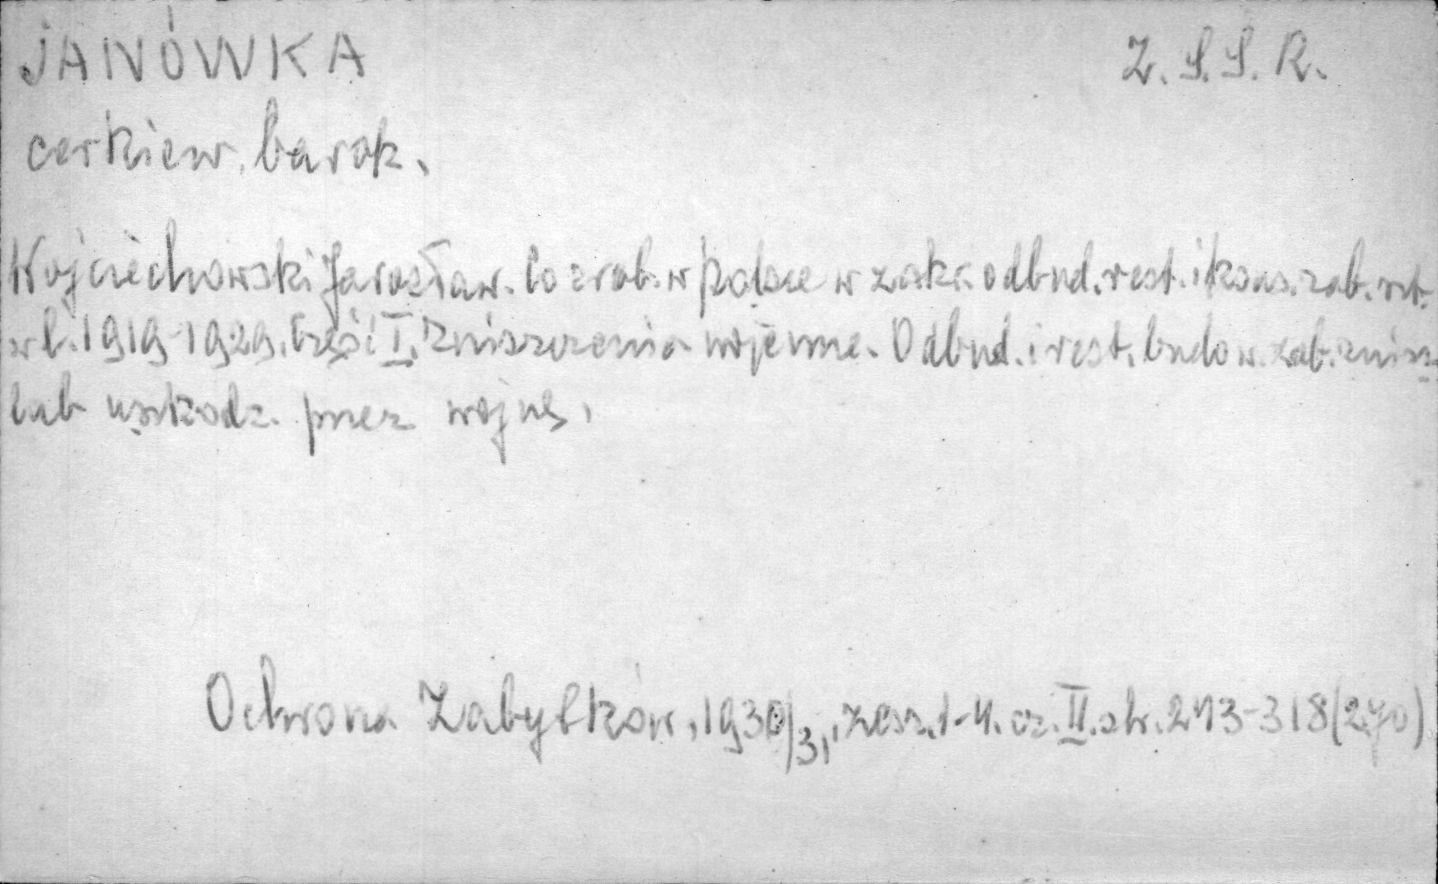 JANÓWKA Z.S.S.R.
cerkiew. barok.
Wojciechowski Jarosław. Co zrob. w Polsce w zakr. odbud. rest. i kons. zab. szt.
w l. 1919-1929. Część I. Zniszczenia wojenne. Odbud. i rest. budow. zab. znisz.
lub uszkodz. przez wojnę.
Ochrona Zabytków, 1930/31, zesz. 1-4. cz. II. str. 243-318 (270)